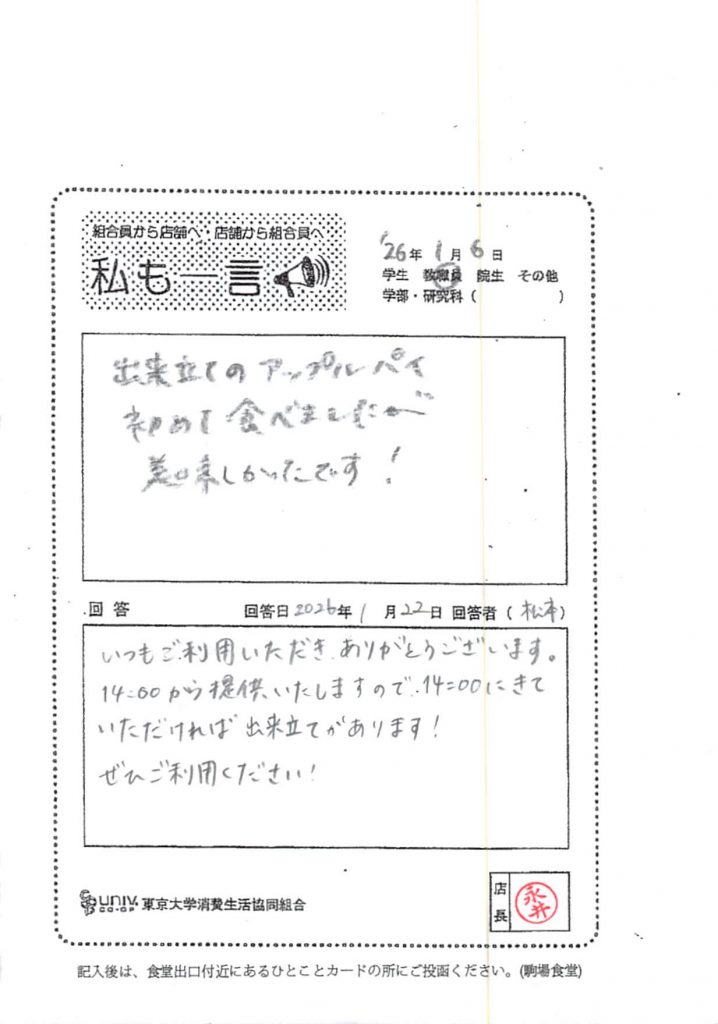 組合員から店舗へ・店舗から組合員へ
私も一言
'26年 1月 6日
学生 教職員 院生 その他
学部・研究科( )
出来立てのアップルパイ
初めて食べましたが
美味しかったです!
回答 回答日 2026年 1月 22日 回答者(松本)
いつもご利用いただき、ありがとうございます。
14:00から提供いたしますので、14:00にきて
いただければ出来立てがあります!
ぜひご利用ください!
UNIV. CO-OP 東京大学消費生活協同組合
店長 永井
記入後は、食堂出口付近にあるひとことカードの所にご投函ください。(駒場食堂)